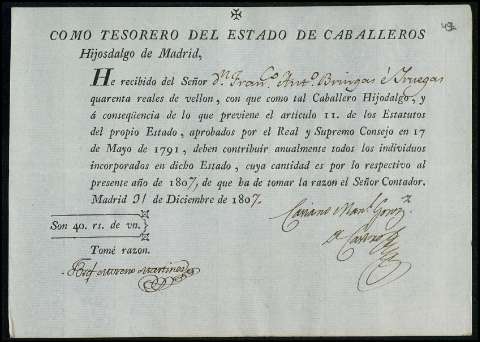 49
COMO TESORERO DEL ESTADO DE CABALLEROS
Hijosdalgo de Madrid,
He recibido del Señor Dn. Franco. Anto. Bringas é Yruegas
quarenta reales de vellon, con que como tal Caballero Hijodalgo, y
á conseqüencia de lo que previene el articulo 11. de los Estatutos
del propio Estado, aprobados por el Real y Supremo Consejo en 17
de Mayo de 1791, deben contribuir anualmente todos los individuos
incorporados en dicho Estado, cuya cantidad es por lo respectivo al
presente año de 1807, de que ha de tomar la razon el Señor Contador.
Madrid 31 de Diciembre de 1807.
Son 40. rs. de vn.
Manl. Gonz
de Castro
Tomé razon.
Moreno Martinez